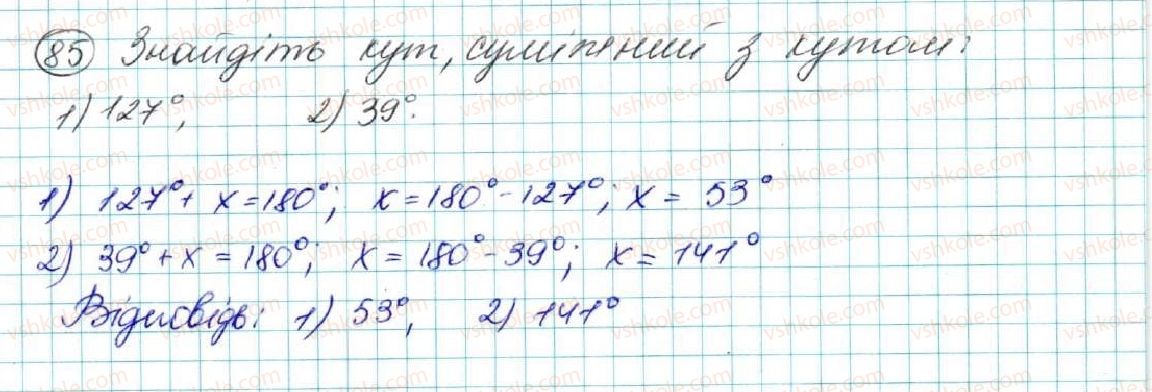 85 Знайдіть кут, суміжний з кутом:
1) 127°, 2) 39°.
1) 127° + x = 180°; x = 180° - 127°; x = 53°
2) 39° + x = 180°; x = 180° - 39°; x = 141°
Відповідь: 1) 53°, 2) 141°